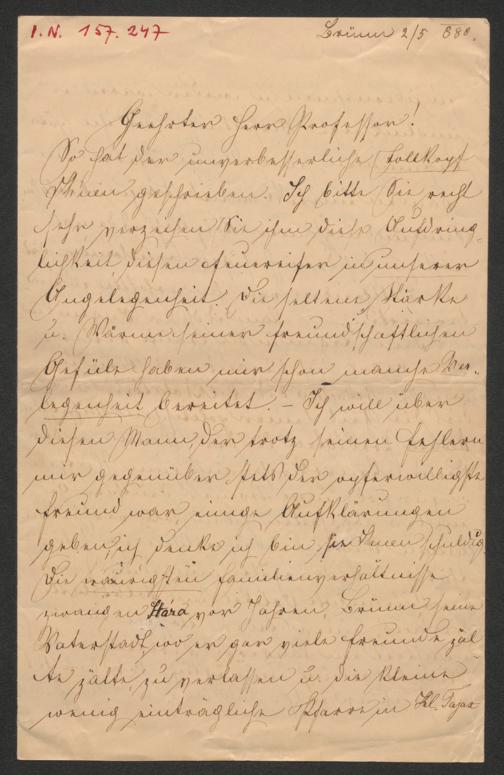 I. N. 157.247
Brünn 2/5 880.
Geehrter Herr Professor!
So hat der unverbesserliche Tollkopf
Ihnen geschrieben. Ich bitte Sie recht
sehr verzeihen Sie ihm diese Aufdring-
lichkeit diesen Feuereifer in unserer
Angelegenheit. Die seltene Stärke
u. Wärme seiner freundschaftlichen
Gefüle haben mir schon manche Ver-
legenheit bereitet. – Ich will über
diesen Mann, der trotz seinen Fehlern
mir gegenüber stets der opferwilligste
Freund war, einige Aufklärungen
geben, ich denke ich bin sie Ihnen schuldig
Die traurigsten Familienverhältnisse
zwangen Stára vor Jahren Brünn seine
Vaterstadt, wo er gar viele Freunde zäl
te zu verlassen u. die kleine
wenig einträgliche Pfarre in Kl. Tajax